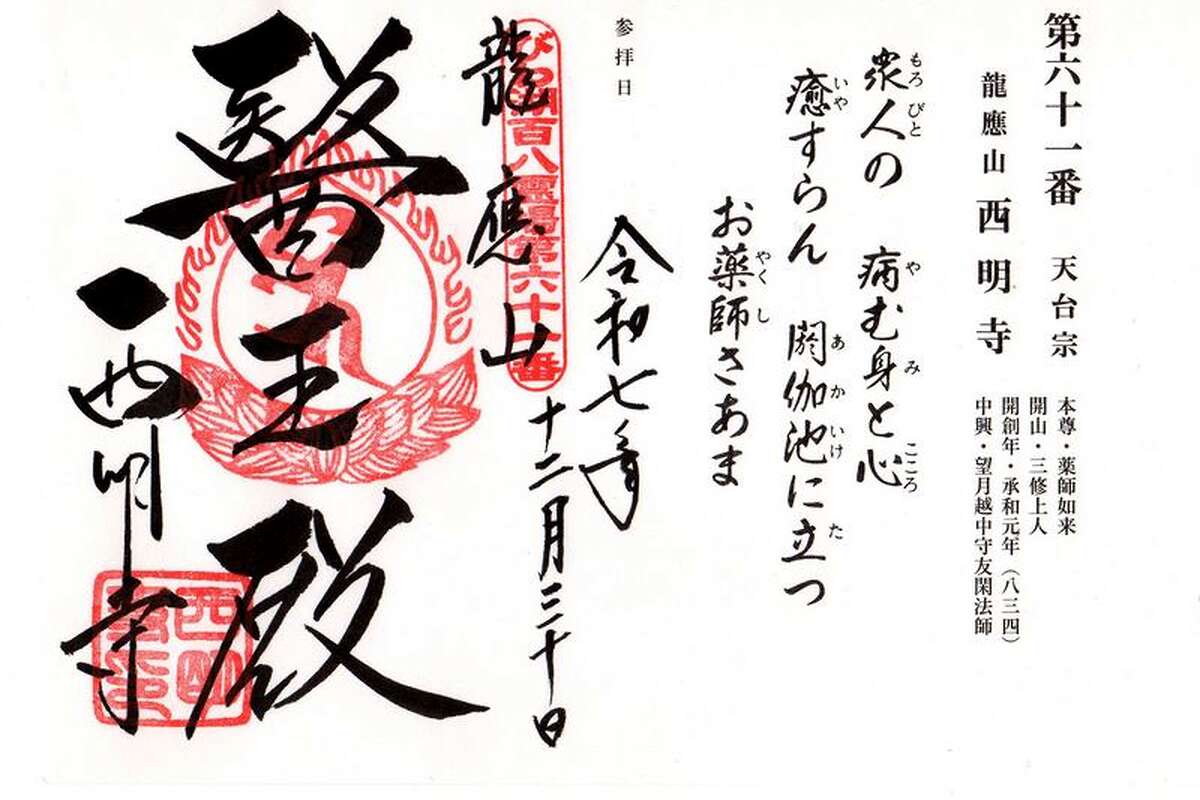 第六十一番 天台宗
龍應山 西明寺
本尊・薬師如来
開山・三修上人
開創年・承和元年（八三四）
中興・望月越中守友閑法師
衆人の 病む身と心
もろ びと や み こころ
癒すらん 閼伽池に立つ
いや あ か いけ た
お薬師さあま
やく し
参拝日
令和七年
十二月三十日
びわ湖百八霊場第六十一番
龍應山
醫王殿
西明寺